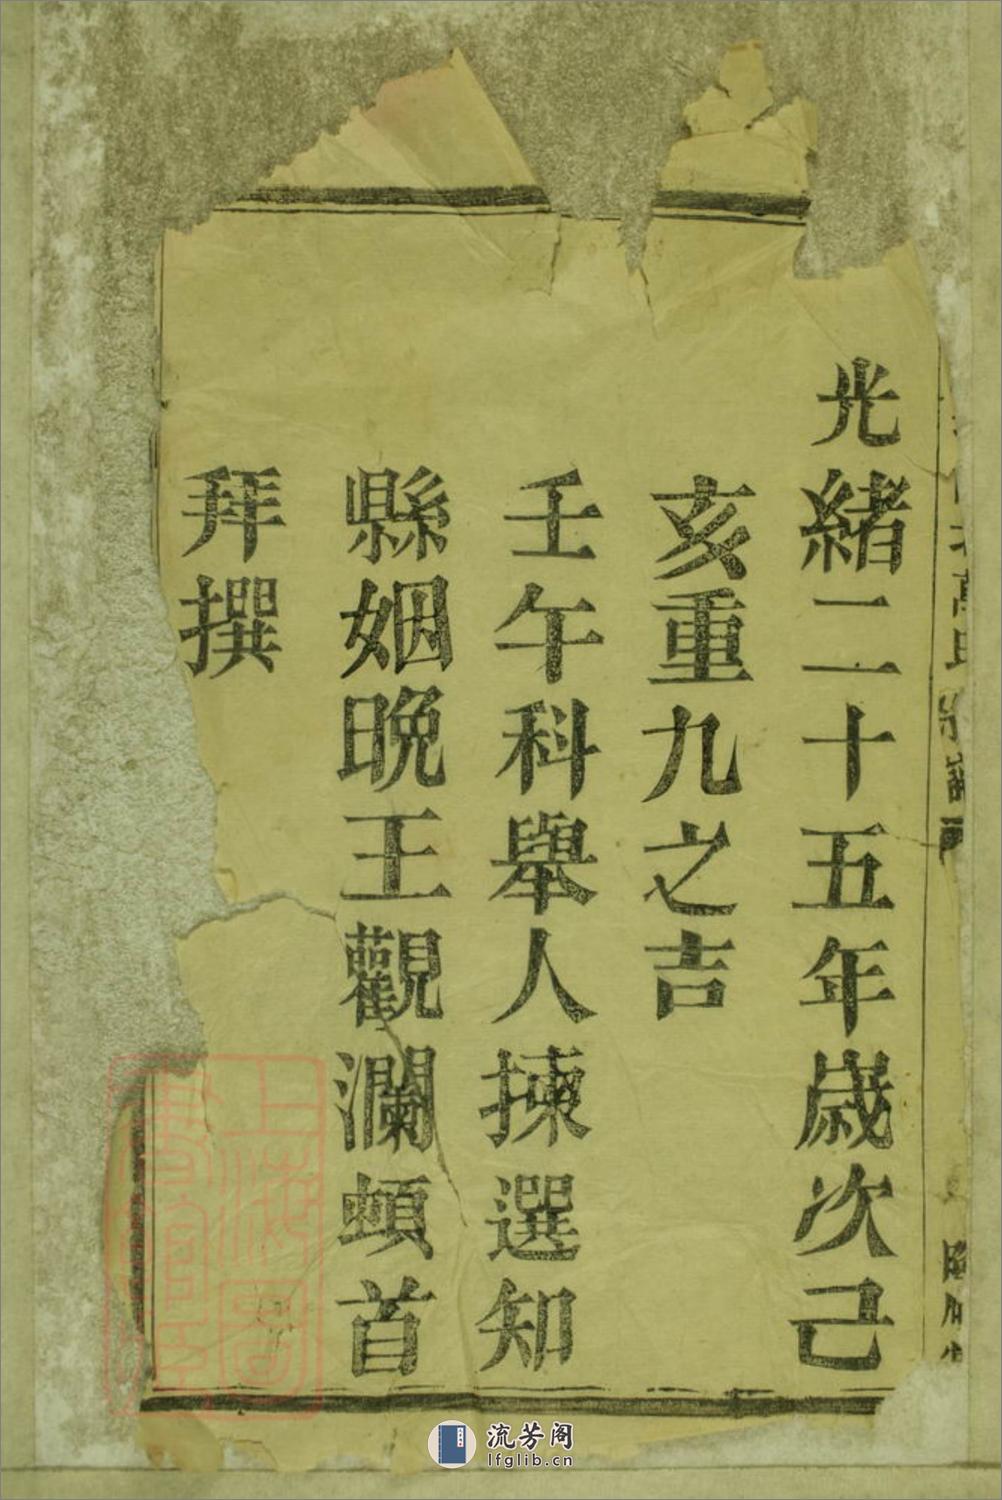 光緒二十五年歲次己
亥重九之吉
壬午科舉人揀選知
縣姻晚王觀瀾頓首
拜撰
上海圖
書館藏
流芳阁
lfglib.cn